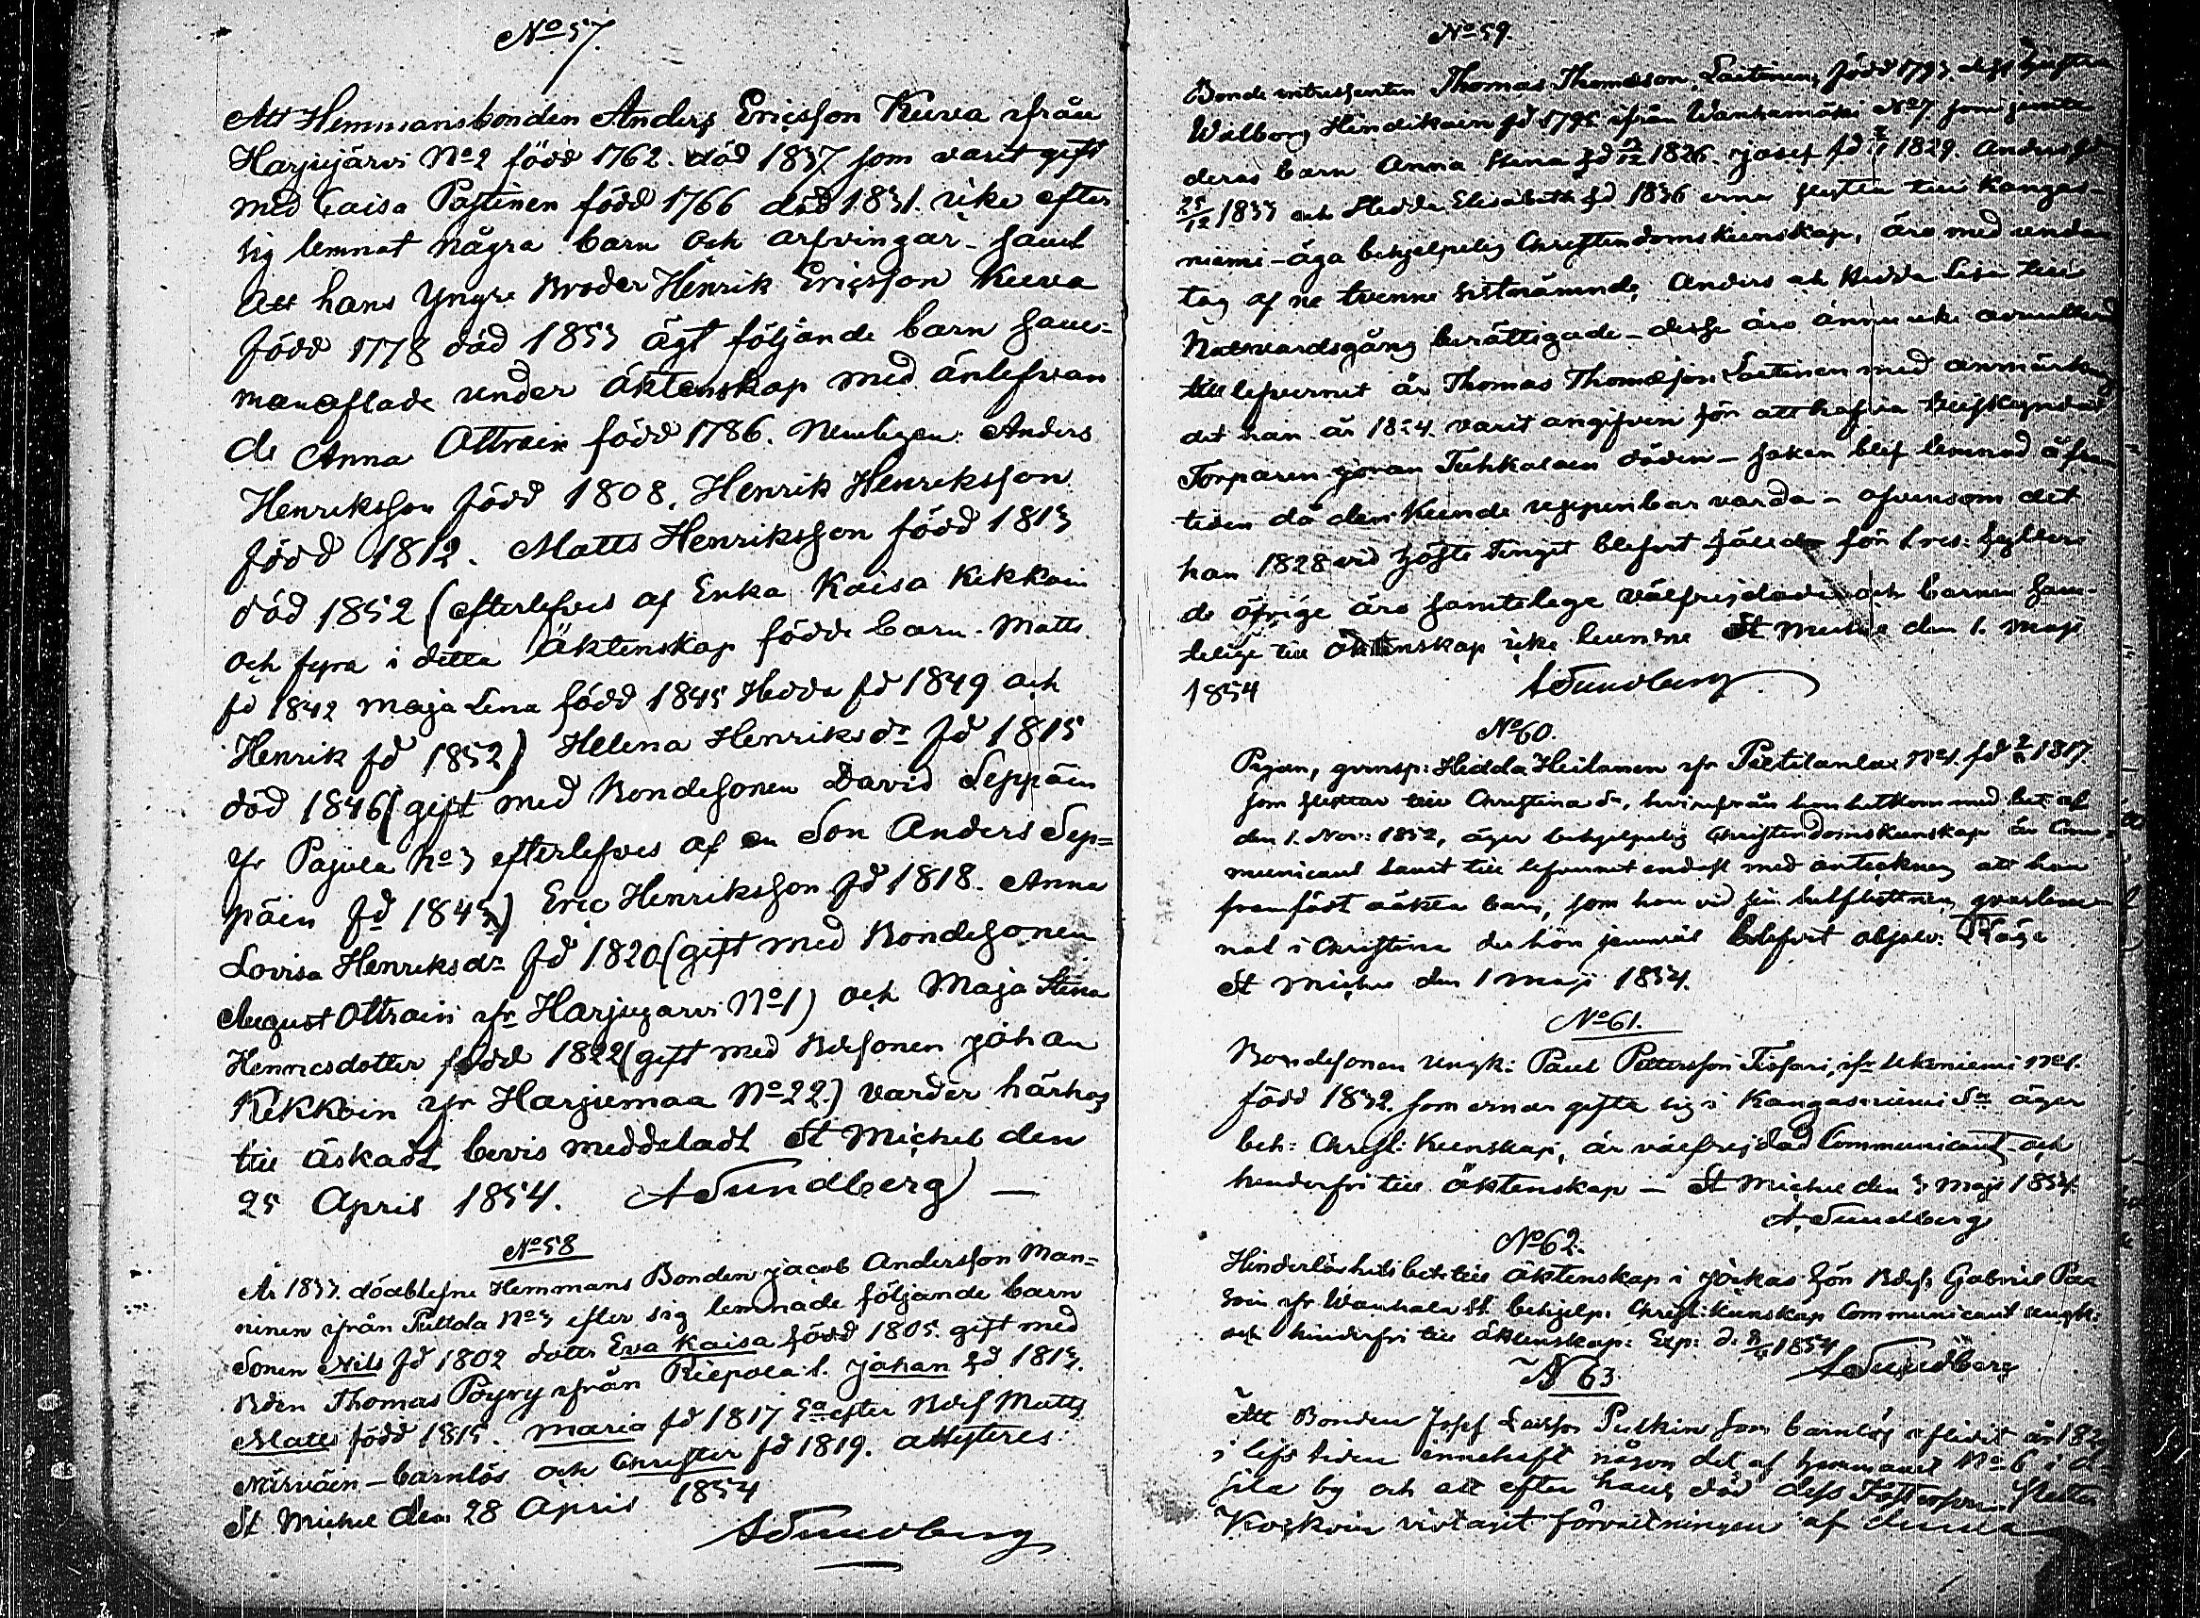 No 57.
Att Hemmansbonden Anders Ericsson Kuva ifrån
Harjujärvi No 2 född 1762. död 1837 som varit gift
med Caisa Pastinen född 1766 död 1831. icke efter
sig lemnat några barn och arfvingar - samt
att hans yngre Broder Henrik Ericsson Kuva
född 1778 död 1853 ägt följande barn sam-
manaflade under äktenskap med änlefvan
de Anna Ottrain född 1786. Nemligen: Anders
Henriksson född 1808. Henrik Henriksson
född 1812. Matts Henriksson född 1813
död 1852 (efterlefves af Enka Kaisa Kekkoin
och fyra i detta Äktenskap födde barn. Matts
fd 1842 Maja Lena född 1845 Hedda fd 1849 och
Henrik fd 1852) Helena Henriksdr fd 1815
död 1846 (gift med Bondesonen David Seppäin
ifr Pajula No 3 efterlefves af en Son Anders Sep=
päin fd 1845) Eric Henriksson fd 1818. Anna
Lovisa Henriksdr fd 1820 (gift med Bondesonen
August Ottrain ifr Harjujärvi No 1) och Maja Stina
Henricsdotter född 1822 (gift med Bdesonen Johan
Kekkoin ifr Harjumaa No 22.) varder härhos
till äskadt bevis meddeladt St Michel den
25 April 1854. A Sundberg —
No 58
År 1833. dödblefne Hemmans Bonden Jacob Andersson Man=
ninen ifrån Pullola No 3 efter sig lemnade följande barn
Sonen Nils fd 1802 dotter Eva Kaisa född 1805 gift med
Bden Thomas Pöyry ifrån Riepola 1. Johan fd 1813.
Matts född 1815. Maria fd 1817 Ea efter Bdes Matts
Närväin - barnlös och Christer fd 1819. attesteres:
St Michel den 28 April 1854
A Sundberg
No 59.
Bonde intressenten Thomas Thomasson Laitinen, född 1793, dess hustru
Walborg Hindikain fd 1795 ifrån Wanhamäki No 7 som jemte
deras barn Anna Stina fd 1826. Josef fd 1829. Anders fd
25/12 1833 och Hedda Elisabeth fd 1836 erna flytta till Kangas-
niemi - äga behjelpelig Christendomskunskap, äro med undan
tag af ne tvenne sistnämnde, Anders och Hedda Lisa till
Nattvardsgång berättigade - desse äro ännu icke admitterade
till lefvernet är Thomas Thomasson Laitinen med anmärkning
det han år 1824 varit angifven för att hafva
Torparen Göran Tuhkalaen döden - saken blef lemnad å fram
tiden då den kunde uppenbar varda - äfvensom det
han 1828 vid höste tinget blifvit fälld för 1 res: fylleri
de öfrige äro samtelige välfrejdade och barnen sam-
telige till äktenskap icke bundne St Michel den 1. Maji
1854 A Sundberg
No 60.
Pigan, Hedda Heilanen ifr Pietilanlax No 1. fd 1817.
som flyttar till Christina Sn, hvarifrån hon hitkom med bet. af
den 1. Nov: 1852, äger behjelpelig Christendomskunskap är Com-
municant samt till lefvernet endast med anteckning att hon
framfödt oäkta barn, som hon vid sin hitflyttning qvarlem-
nat i Christina der hon jemväl blifvit absolv:
St Michel den 1 Maji 1854.
No 61.
Bondesonen Ungk: Paul Pettersson Tissari, ifr Ukoniemi No 1.
född 1832. som ernar gifta sig i Kangasniemi Sn äger
beh: Christ: Kunskap, är välfrejdad Communicant och
hinderfri till Äktenskap — St Michel den 3 Maji 1854.
A Sundberg
No 62.
Hinderlöshetsbet. till äktenskap i Jockas för Bdes Gabriel
ifr Wanhala St. behjelp: Christ: kunskap Communicant ungk:
och hinderfri till äktenskap: Exp: d. 1854
A Sundberg
N 63.
Att Bonden Josef Larsson Pulkin som barnlös aflidit år 182
i lifs tiden innehaft någon del af hemmanet No 6 i
sila by och att efter hans död dess Fosterson Petter
Koskoin vidtagit förvaltningen af